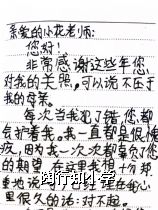 亲爱的小花老师：
您好！
非常感谢这些年您
对我的关照，可以说不亚于
我的母亲。
每次当我犯了错，您都
会护着我。我一直都是很惭
疚，因为我一次次都辜负了您
的期望，在这里我很十分郑
重地说
在我心
里很久的话：对不起。
陶行知小学